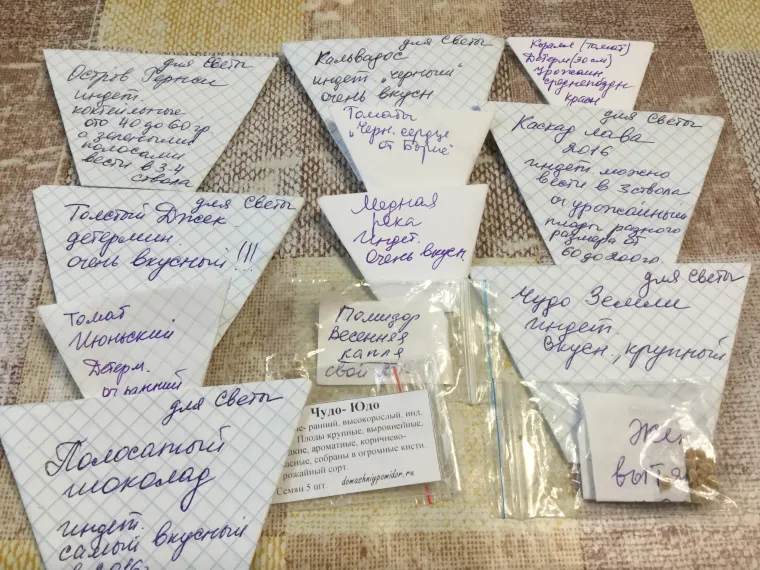 для Светы
Остров
индет.
коктейльные
от 40 до 60 гр
с зелеными
полосами
вести в 3-4
ствола
для Светы
Кальвадос
индет. "черный"
очень вкусн
Томаты
"Черн. сердце
от
Коралл (томат)
Детерм (30 см)
Урожайн
красн
для Светы
Каскад лава
2016
индет. можно
вести в 3 ствола
оч урожайный
плоды разного
размера от
60 до 200 гр.
для Светы
Толстый Джек
детермин.
очень вкусный!!!
Медная
река
Индет.
Очень вкусн.
Томат
Июньский
Детерм.
оч ранний
Помидор
Весенняя
капля
для Светы
Чудо Земли
индет.
вкусн., крупный
Чудо- Юдо
ранний, высокорослый, инд.
Плоды крупные, выровненные,
ароматные, коричнево-
собраны в огромные кисти.
сорт
Семян 5 шт. domashniypomidor.ru
для Светы
Полосатый
шоколад
индет.
самый вкусный